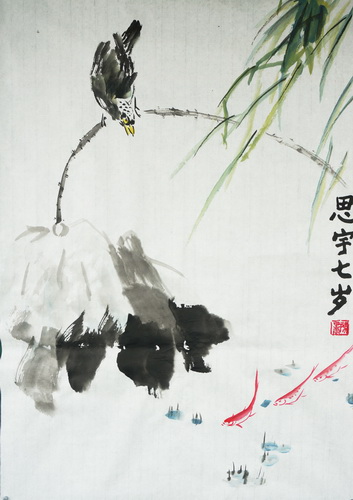 思宇七岁